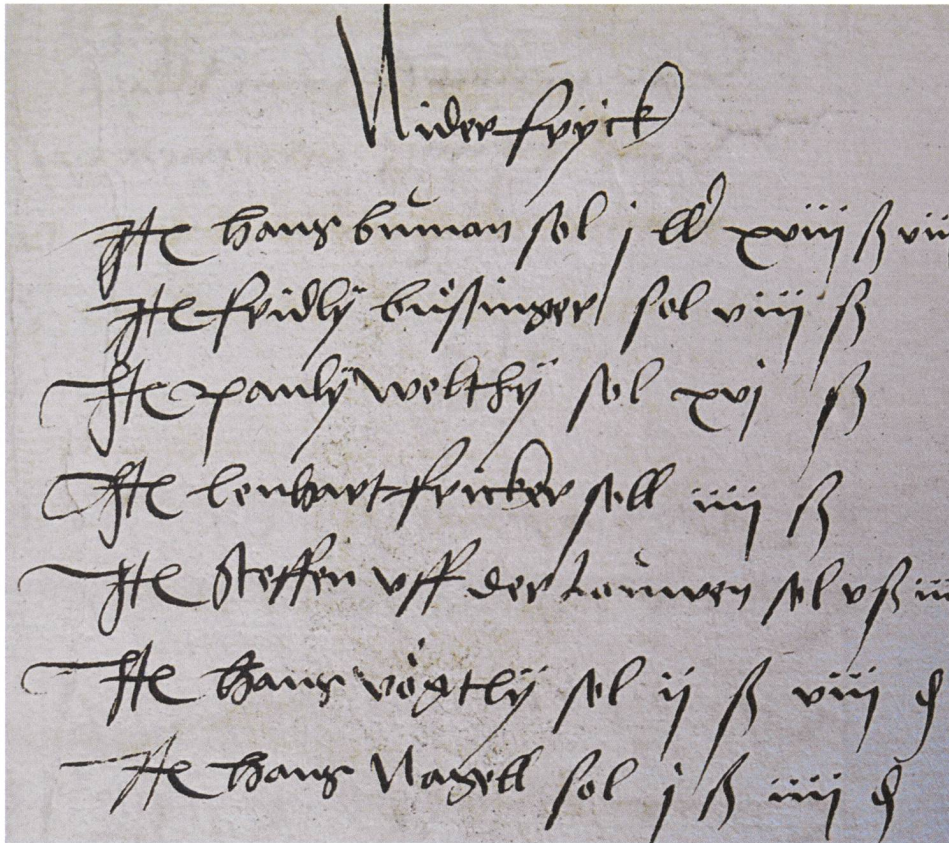 Niderfryck
Ite hans buman sol j lb xviij ß viij
Ite fridly büssinger sol viij ß
Ite pauly welthy sol xvj ß
Ite lenhart fricker soll iiij ß
Ite steffen vff der louwen sol v ß iij
Ite hans vögtly sol ij ß viij d
Ite hans Nagell sol j ß iiij d